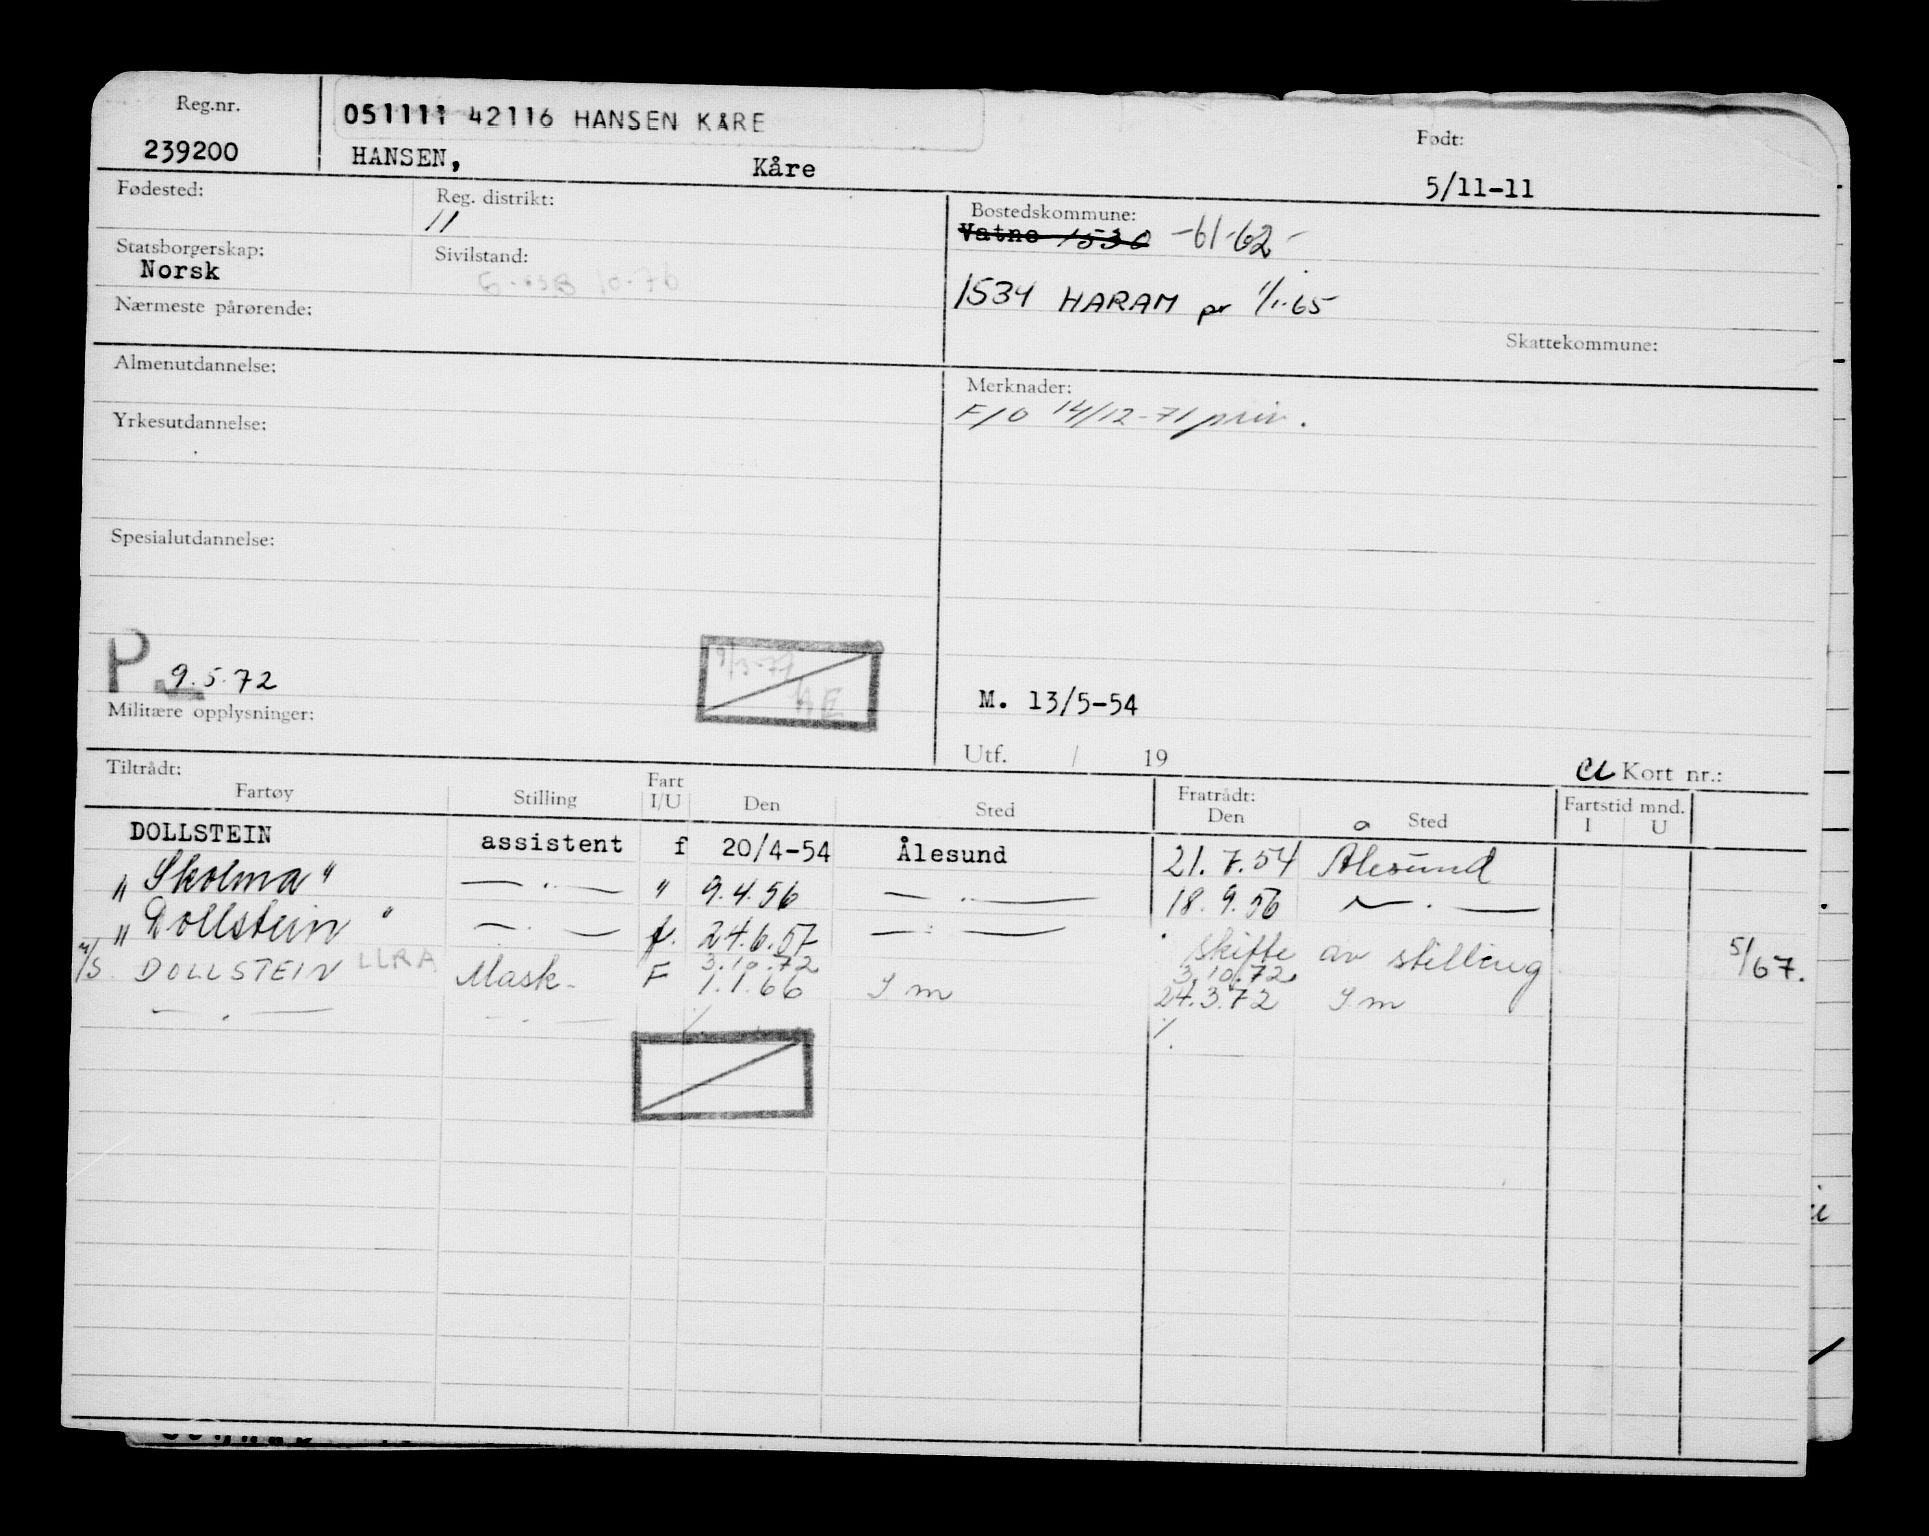 Reg.nr.
239200
051111 42116 HANSEN KÅRE
HANSEN, Kåre
Født:
5/11-11
Fødested:
Reg. distrikt:
11
Statsborgerskap:
Norsk
Sivilstand:
10-76
Nærmeste pårørende:
Bostedskommune:
Vatne 1530 -61-62-
1534 HARAM pr 1/1-65
Skattekommune:
Almenutdannelse:
Yrkesutdannelse:
Spesialutdannelse:
P 9.5.72
Militære opplysninger:
Merknader:
F/O 14/12-71 priv.
M. 13/5-54
Utf. / 19
Kort nr.:
Tiltrådt:
Fartøy Stilling Fart I/U Den Sted
Fratrådt:
Den Sted
Fartstid mnd.
I U
DOLLSTEIN assistent f 20/4-54 Ålesund 21.7.54 Ålesund
" Skolma " — " — " 9.4.56 — " — 18.9.56 — " —
" Dollstein " — " — f. 24.6.57 — " — skifte av stilling 5/67.
3.10.72 3.10.72
M/S DOLLSTEIN LLRA Mask. F 1.1.66 I m 24.3.72 I m
— " — — " — % %